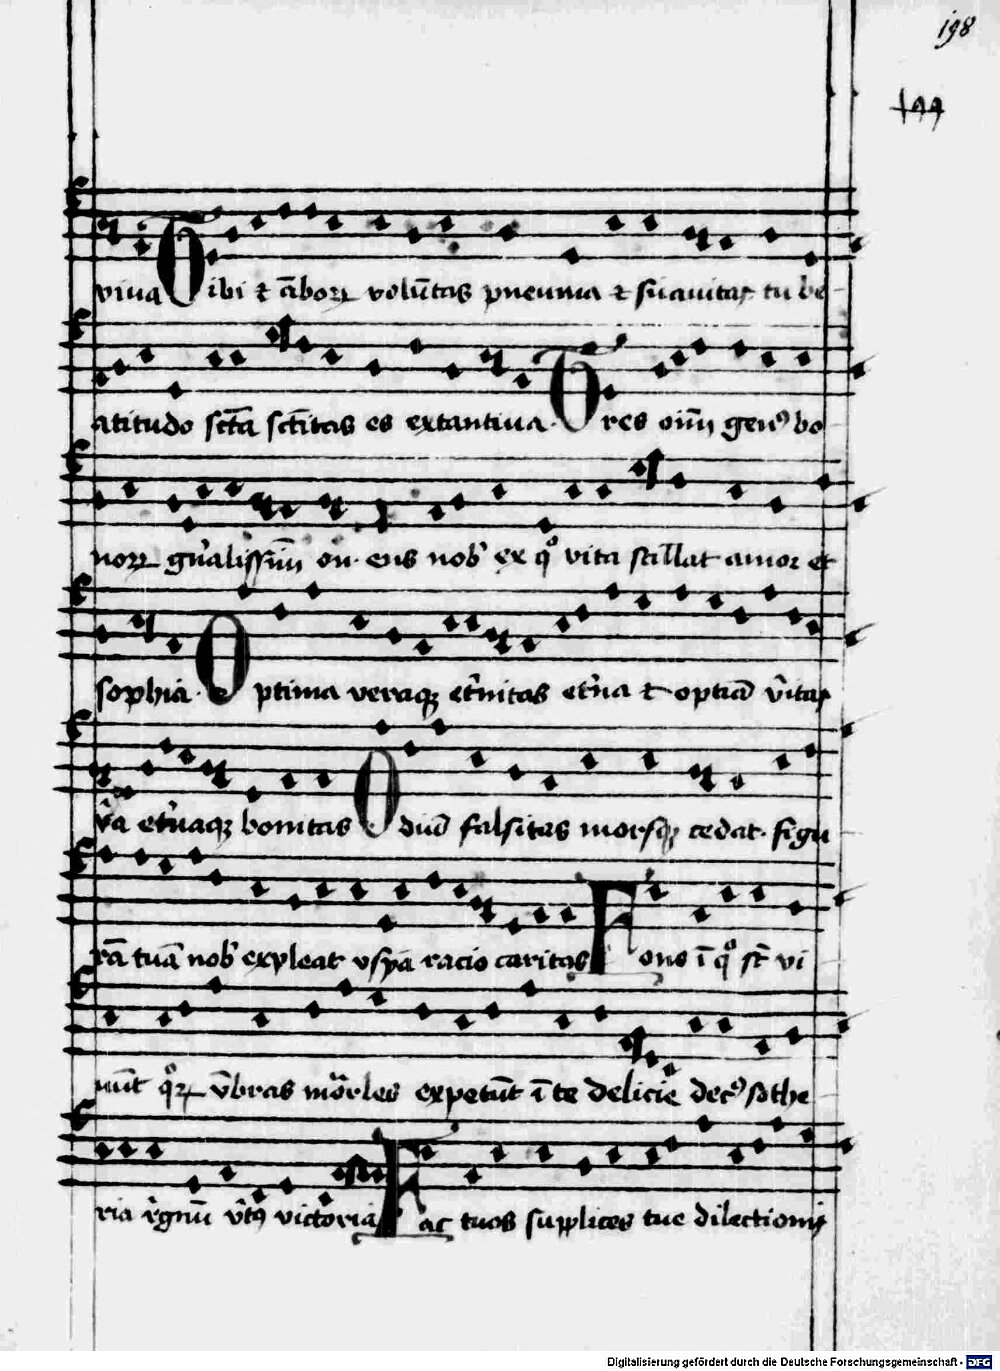 198
199
viva Tibi ⁊ āborꝝ volūtas pneuma ⁊ suavitas tu be
atitudo sct̄a sct̄itas es extantiua. Tres oīm genꝰ bo
norꝝ gn̓alissīm on. ens nob̓ ex qͦ vita stillat amor et
sophia. Optima veraqꝫ et̓nitas et̓na ⁊ optīa v̓itas
v̓a et̓naqꝫ bonitas Odiū falsitas morsqꝫ cedat. figu
rā tuā nob̓ expleat vsya racio caritas Fons ī qͦ st̄ vi
uūt qͦrꝝ vmbras mōrles expetūt ī te delicie decꝰ sothe
ria r̓gnū v̓tꝰ victoria Fac tuos supplices tue dilectionis
Digitalisierung gefördert durch die Deutsche Forschungsgemeinschaft - DFG